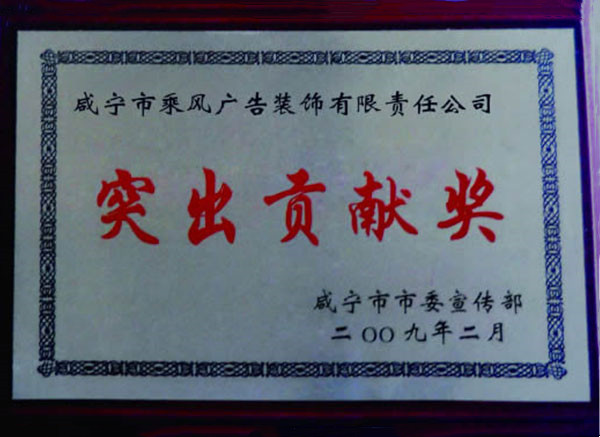 咸宁市乘风广告装饰有限责任公司
突出贡献奖
咸宁市市委宣传部
二OO九年二月